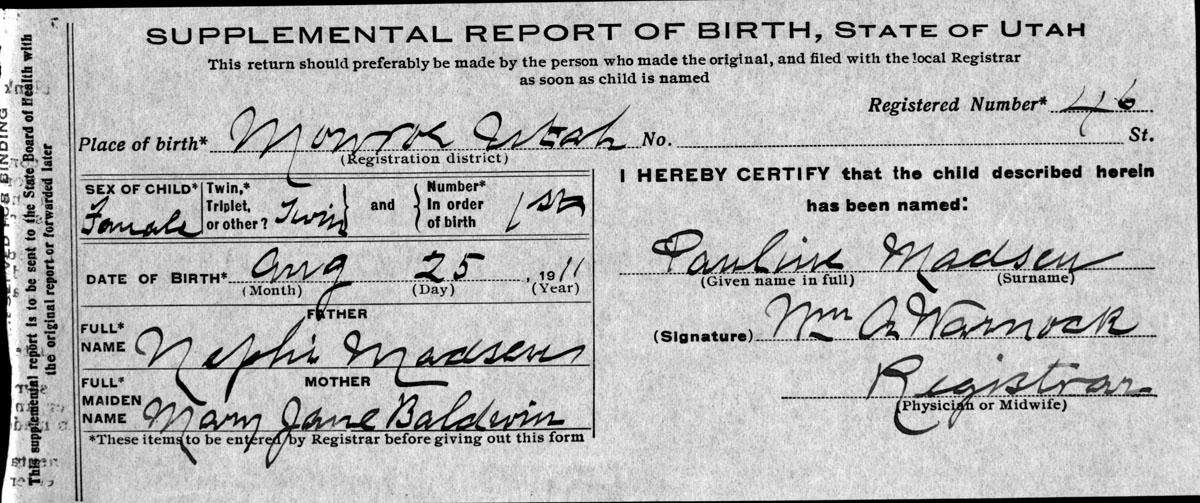 SUPPLEMENTAL REPORT OF BIRTH, STATE OF UTAH
This return should preferably be made by the person who made the original, and filed with the local Registrar
as soon as child is named
Registered Number* 46
Place of birth* Monroe Utah No. St.
(Registration district)
SEX OF CHILD* Female
Twin,* Triplet, or other? Twin
and
Number* In order of birth 1st
DATE OF BIRTH* Aug 25, 1911
(Month) (Day) (Year)
FATHER
FULL* NAME Nephi Madsen
MOTHER
FULL* MAIDEN NAME Mary Jane Baldwin
*These items to be entered by Registrar before giving out this form
I HEREBY CERTIFY that the child described herein
has been named:
Pauline Madsen
(Given name in full) (Surname)
(Signature) Wm A Warnock
Registrar
(Physician or Midwife)
This supplemental report is to be sent to the State Board of Health with
the original report or forwarded later
BINDING